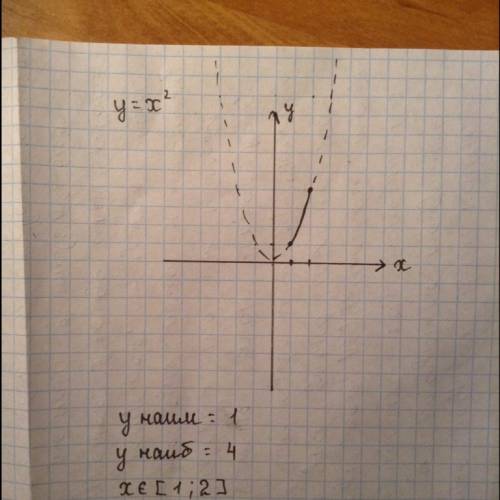 y = x²
y
x
y наим = 1
y наиб = 4
x ∈ [1; 2]